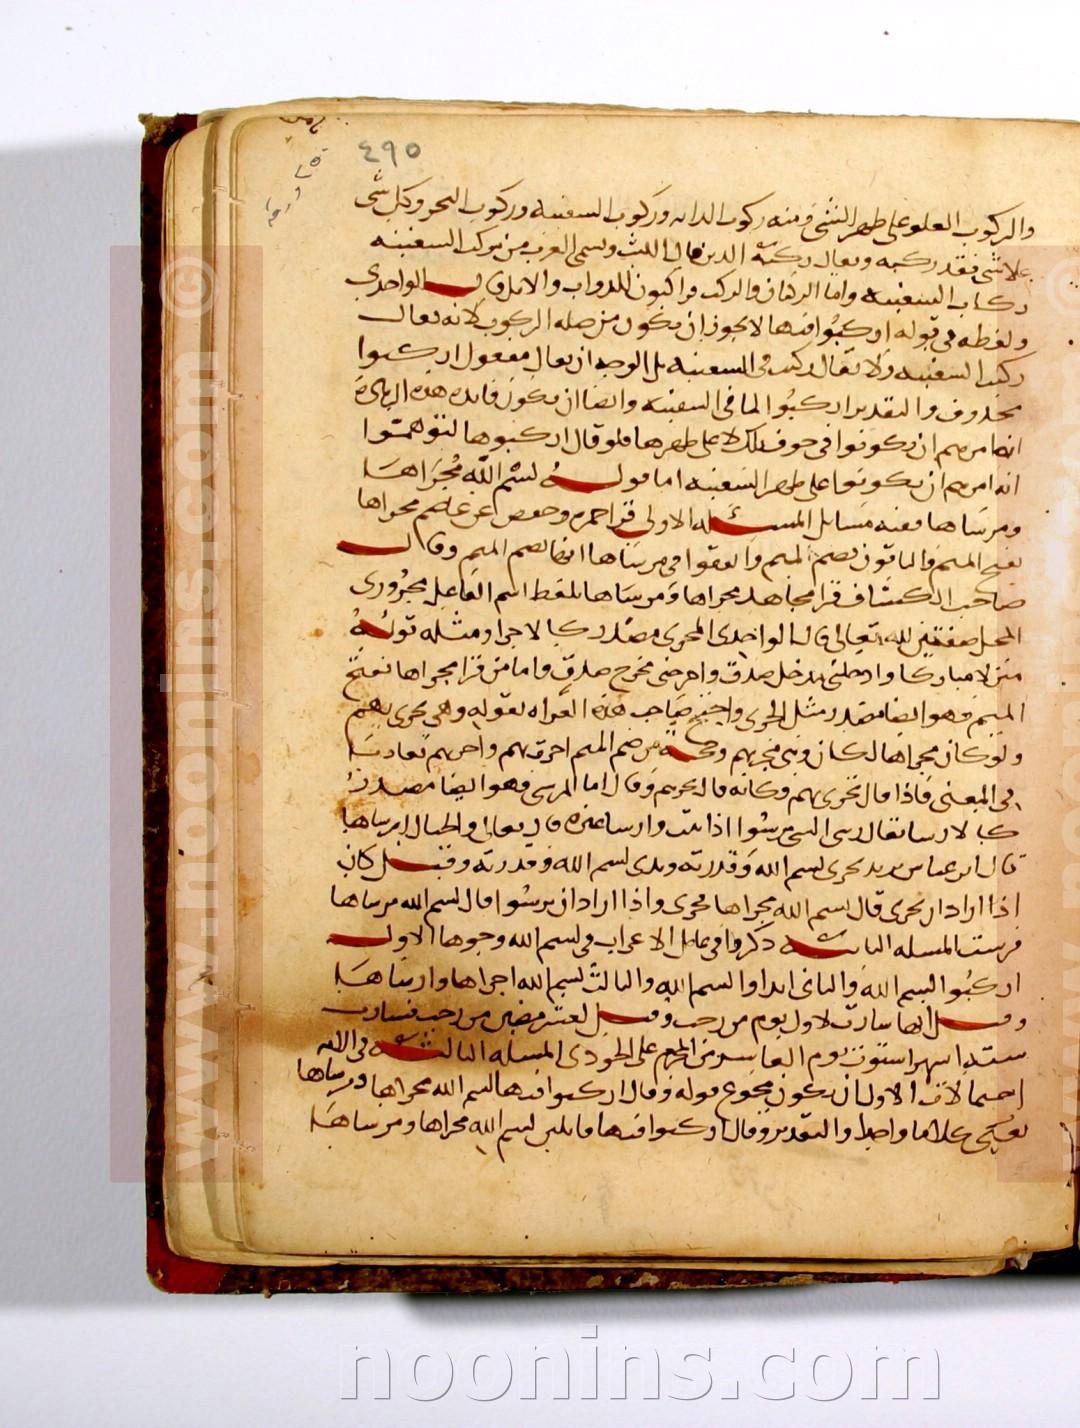 ٤٩٥
والركوب العلو على ظهر الشئ فمنه ركوب الدابه وركوب السفينه وركوب البحر وكل شئ
علا شئ فقد ركبه ويقال ركبه الدين قال الليث وتسمى العرب من يركب السفينه
ركاب السفينه واما الركبان والركب فراكبون للدواب والابل قال الواحدي
ولفظه في قوله اركبوا فيها لا يجوز ان يكون من صله الركوب لانه يقال
ركبت السفينه ولا يقال ركبت في السفينه بل الوجه ان يقال مفعول اركبوا
محذوف والتقدير اركبوا الما في السفينه وايضا ان يكون فايده هذه الزيادة
انه امرهم ان يكونوا في جوف الفلك لا على ظهرها فلو قال اركبوها لتوهموا
انه امرهم ان يكونوا على ظهر السفينه اما قوله بسم الله مجراها
ومرساها ففيه مسايل المسئله الاولى قرا حمزه وحفص عن عاصم مجراها
بفتح الميم والباقون بضم الميم واتفقوا في مرساها انها بضم الميم وقال
صاحب الكشاف قرا مجاهد مجراها ومرساها بلفظ اسم الفاعل مجروري
المحل صفتين لله تعالى قال الواحدي المجرى مصدر كالاجرا ومثله قوله
منزلا مباركا وادخلني مدخل صدق واخرجني مخرج صدق واما من قرا مجراها بفتح
الميم فهو ايضا مصدر مثل الجري واحتج صاحب هذه القراه بقوله وهي تجري بهم
ولو كان مجراها لكان وهي تجريهم وحجة من ضم الميم ان جرت بهم واجرتهم يتقاربان
في المعنى فاذا قال تجري بهم فكانه قال تجريهم وقال اما المرسى فهو ايضا مصدر
كالارسا يقال رسى الشئ يرسوا اذا ثبت وارساه غيره قال تعالى والجبال ارساها
قال ابن عباس يريد تجري بسم الله وقدرته وترسى بسم الله وقدرته وقيل كان
اذا اراد ان تجرى قال بسم الله مجراها فتجرى واذا اراد ان ترسوا قال بسم الله مرساها
فرست المسله الثانيه ذكروا في عامل الاعراب في بسم الله وجوها الاول
اركبوا بسم الله والثاني ابدوا بسم الله والثالث بسم الله اجراها وارساها
وقيل انها سارت لاول يوم من رجب وقيل لعشر مضين من رجب فسارت
سته اشهر واستوت يوم العاشر من المحرم على الجودي المسله الثالثه في الآيه
احتمالان الاول ان يكون مجموع قوله وقال اركبوا فيها بسم الله مجراها ومرساها
كلاما واحدا والتقدير وقال اركبوا فيها قايلين بسم الله مجراها ومرساها
noonins.com
www.noonins.com ©